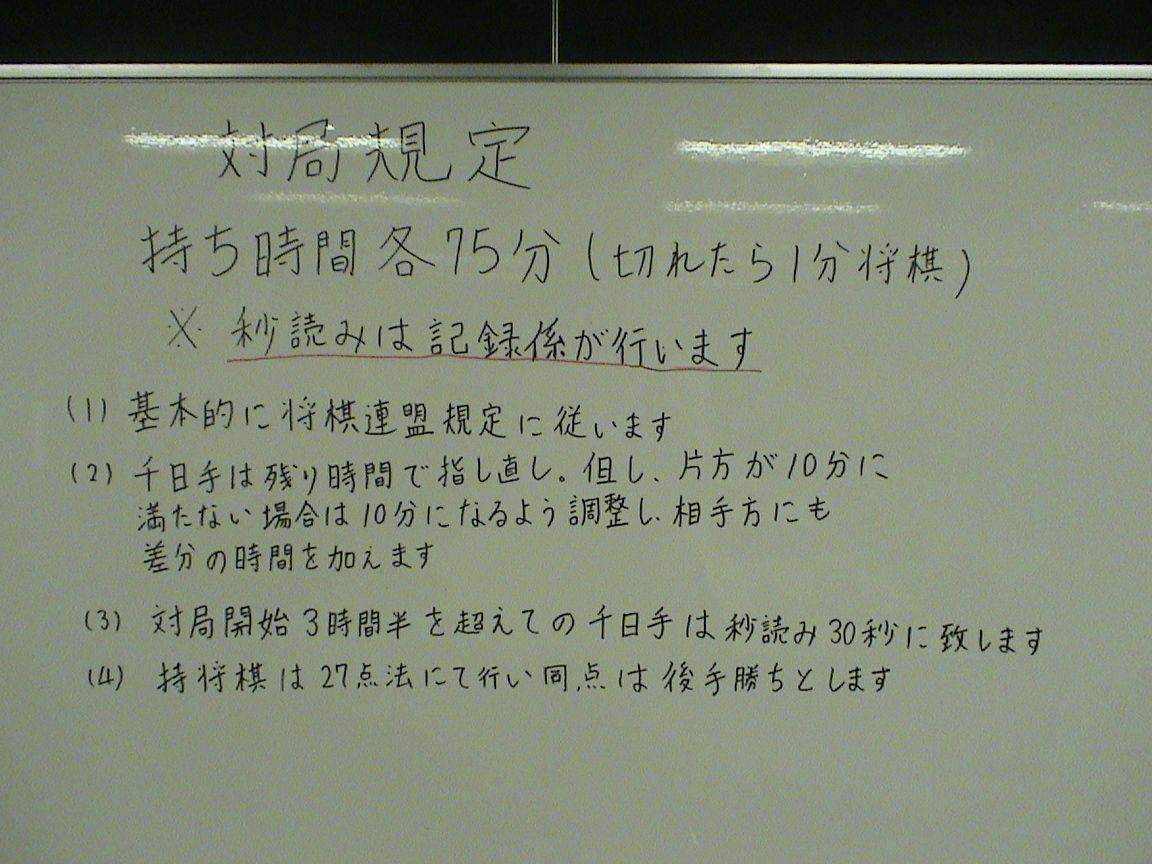 対局規定
持ち時間各75分(切れたら1分将棋)
※ 秒読みは記録係が行います
(1) 基本的に将棋連盟規定に従います
(2) 千日手は残り時間で指し直し。但し、片方が10分に
満たない場合は10分になるよう調整し、相手方にも
差分の時間を加えます
(3) 対局開始3時間半を超えての千日手は秒読み30秒に致します
(4) 持将棋は27点法にて行い同点は後手勝ちとします